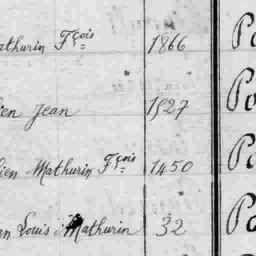 athurin Fçois 1866 Po
ien Jean 1527 Po
lien Mathurin Fçois 1450 Po
en Louis Mathurin 32 Po